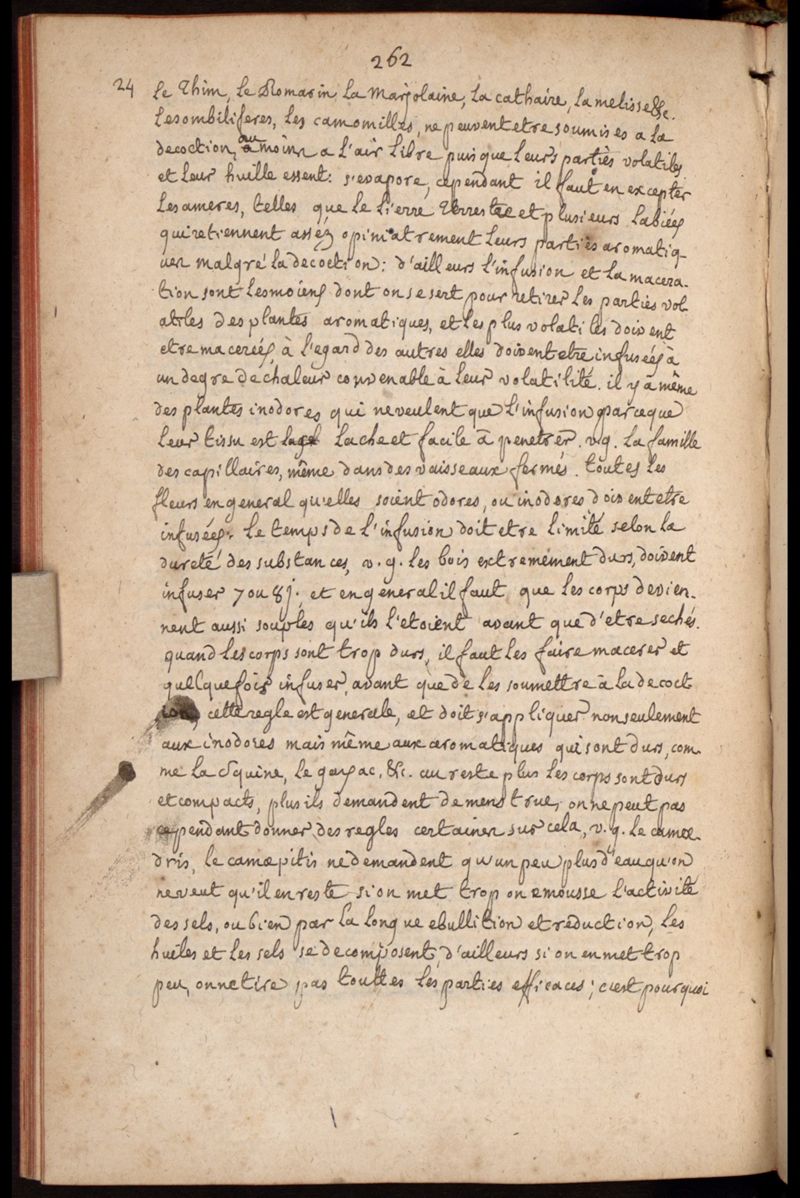 262
24 Le Thim, le Romarin, la Marjolaine, la cathaire, la melisse &c.
Les ombiliferes, les camomilles, ne peuvent etre soumises a la
decoction, au moins a l'air libre puis que leurs parties volatiles
et leur huille essent: s'evapore, cependant il faut en excepter
les ameres, telles que le lierre terrestre et plusieurs labiées
qui retiennent assés opiniatrement leurs parties aromatiq
ues malgré la decoction; d'ailleurs l'infusion et la macera-
tion sont les moiens dont on se sert pour retirer les parties vol
atiles des plantes aromatiques, et les plus volatiles doivent
etre macereés, à l'egard des autres elles doivent etre infuseés à
un degre de chaleur convenable à leur volatilité. il y a même
des plantes inodores qui ne veulent que l'infusion parceque
leur tissu est lache et facile à penetrer. v.g. la famille
des capillaires, même dans des vaisseaux fermés. toutes les
fleurs en general qu'elles soient odores, ou inodores doivent etre
infusées. Le temps de l'infusion doit etre limité selon la
dureté des substances, v.g. les bois extremément durs, doivent
infuser 7 ou 8 j. et en general il faut que les corps devien-
nent aussi souples qu'ils l'etoient avant que d'etre sechés.
quand les corps sont trop durs, il faut les faire macerer et
quelquefois infuser, avant que de les soumettre à la decoct
ion, cette regle est generale, et doit s'appliquer non seulement
aux inodores mais même aux aromatiques qui sont durs, com-
me la squine, le gayac, &c. au reste plus les corps sont durs
et compacts, plus ils demandent de menstrue, on ne peut pas
cependant donner des regles certaines sur cela, v.g. le camæ-
dris, le camæpitis ne demandent qu'un peu plus d'eau qu'on
ne veut qu'il en reste si on met trop on emousse l'activité
des sels, ou bien par la longue ebullition et reduction, les
huiles et les sels se decomposent, d'ailleurs si on en met trop
peu, on ne tire pas touttes les parties efficaces; c'est pourquoi